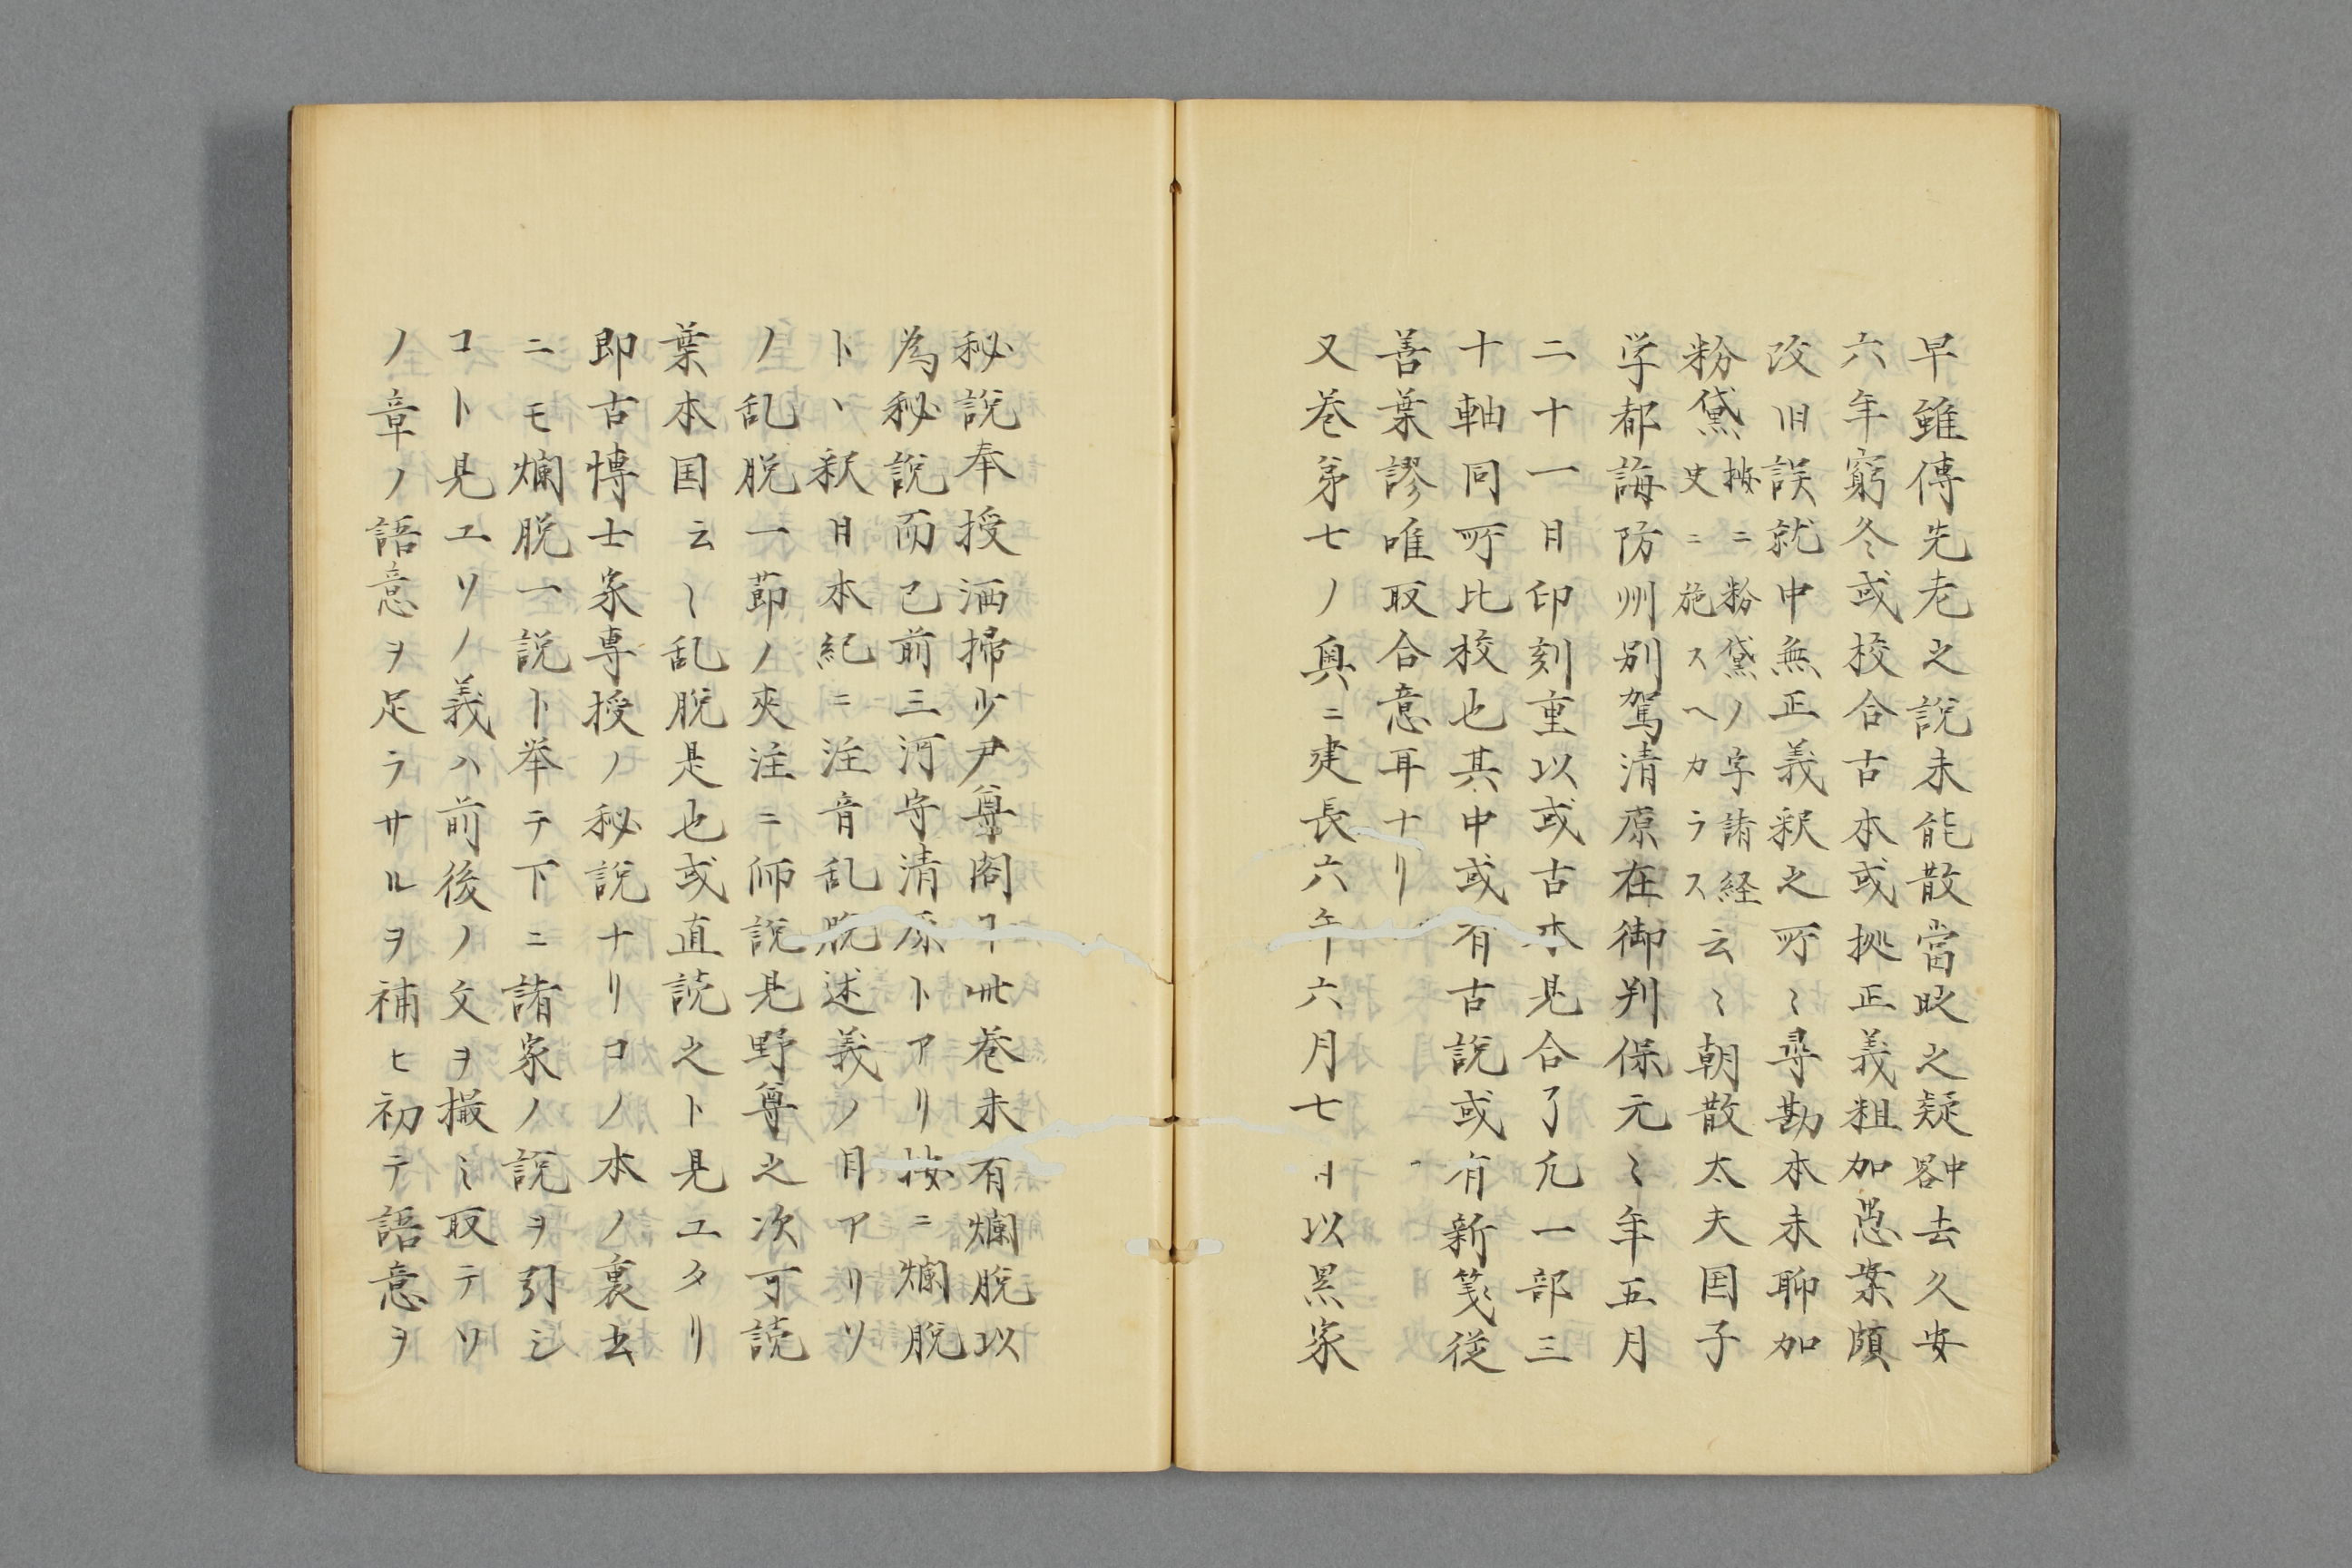 早雖傳先老之說未能散當時之疑畧中去久安
六年窮冬或校合古本或挑正義粗加愚案頗
改旧誤就中無正義釈之所〻尋勘本未聊加
粉黛按ニ粉黛ノ字諸経
史ニ施スヘカラス云〻朝散太夫国子
学都誨防州別駕清原在御判保元〻年五月
二十一日印刻重以或古本見合了凢一部三
十軸同所比校也其中或有古說或有新箋従
善葉謬唯取合意耳ナリ
又巻第七ノ奥ニ建長六年六月七日以累家
秘說奉授洒掃少尹尊閤了此巻未有爛脫以
為秘說而已前三河守清原トアリ按ニ爛脫
トハ釈日本紀ニ注音乱脫述義ノ目アリソ
ノ乱脫一莭ノ夾注ニ師說見野尊之次可読
葉本国云〻乱脫是也或直読之ト見ユタリ
即古博士家専授ノ秘說ナリコノ本ノ裏書
ニモ爛脫一說ト挙テ下ニ諸家ノ說ヲ引シ
コト見エソノ義ハ前後ノ文ヲ撮ミ取テソ
ノ章ノ語意ヲ足ラサルヲ補ヒ初テ語意ヲ